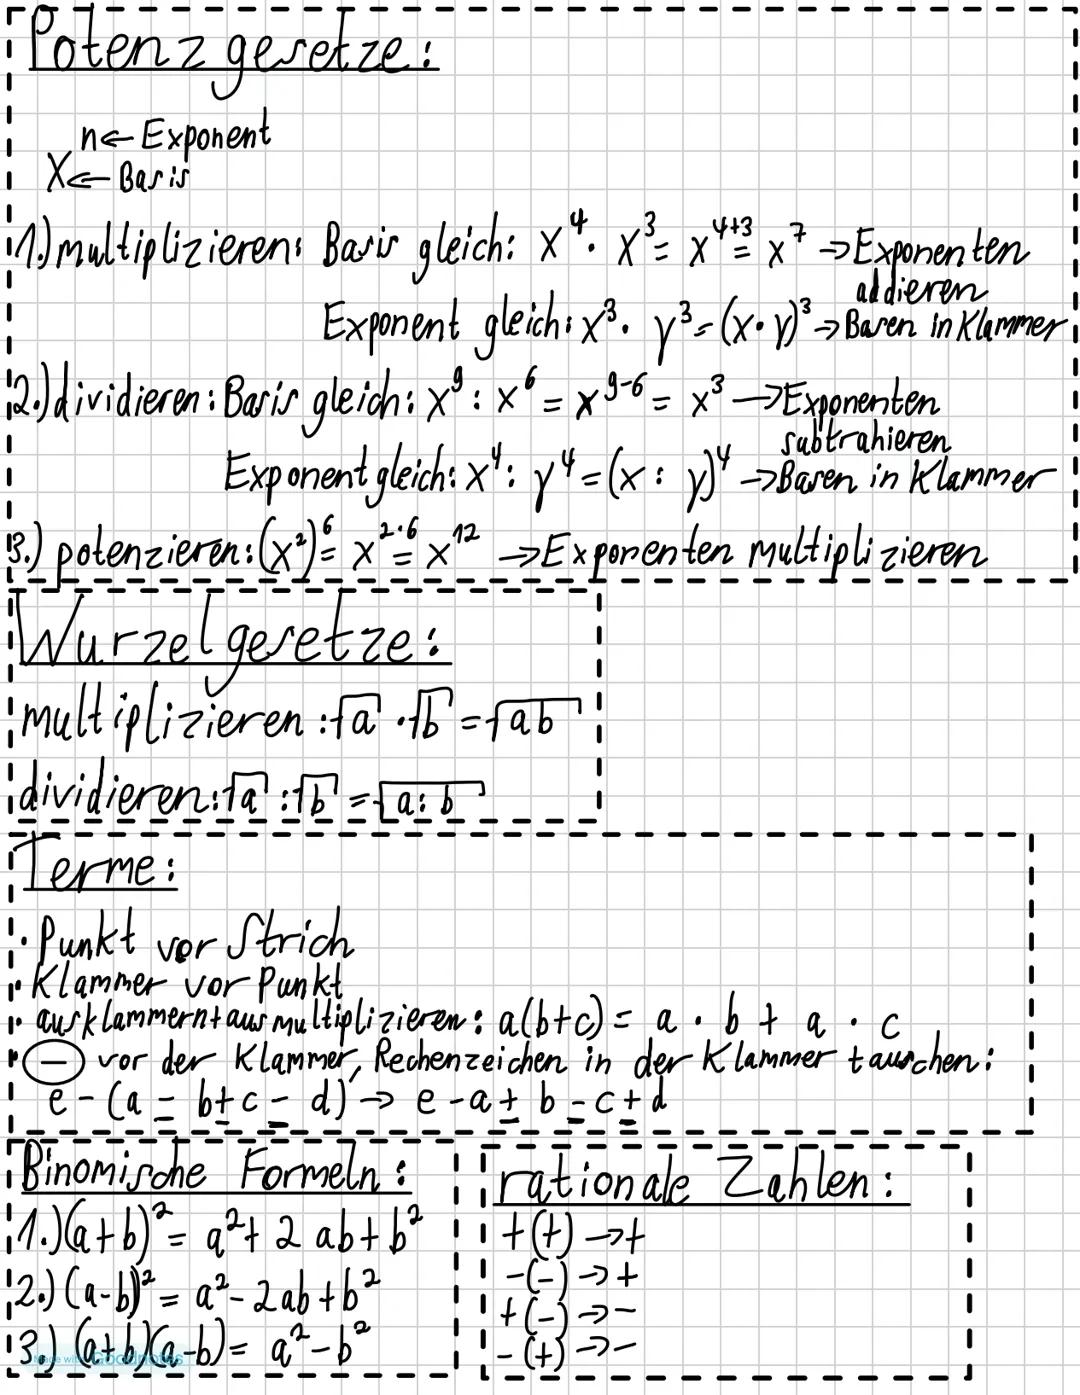 Potenzgesetze:
n ← Exponent
X ← Basis
1.) multiplizieren: Basis gleich: x⁴ · x³ = x⁴⁺³ = x⁷ → Exponenten
addieren
Exponent gleich: x³ · y³ = (x · y)³ → Basen in Klammer
2.) dividieren: Basis gleich: x⁹ : x⁶ = x⁹⁻⁶ = x³ → Exponenten
subtrahieren
Exponent gleich: x⁴ : y⁴ = (x : y)⁴ → Basen in Klammer
3.) potenzieren: (x²)⁶ = x²˙⁶ = x¹² → Exponenten multiplizieren
Wurzelgesetze:
multiplizieren: √a · √b = √ab
dividieren: √a : √b = √a:b
Terme:
· Punkt vor Strich
· Klammer vor Punkt
· ausklammern + ausmultiplizieren: a(b+c) = a · b + a · c
· − vor der Klammer, Rechenzeichen in der Klammer tauschen:
e - (a - b + c - d) → e - a + b - c + d
Binomische Formeln:
1.) (a+b)² = a² + 2 ab + b²
2.) (a-b)² = a² - 2ab + b²
3.) (a+b)(a-b) = a² - b²
Made with Goodnotes
rationale Zahlen:
+(+) → +
-(-) → +
+(-) → -
-(+) → -